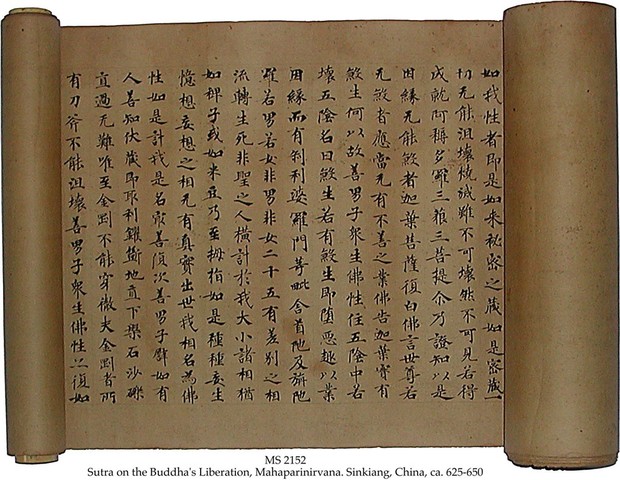 如我性者即是如來祕密之藏如是密藏一
切无能沮壞燒滅雖不可壞然不可見若得
成就阿耨多羅三藐三菩提介乃證知以是
因緣无能煞者迦葉菩薩復白佛言世尊若
无煞者應當无有不善之業佛告迦葉實有
煞生何以故善男子衆生佛性住五陰中若
壞五陰名曰煞生若有煞生即墮惡趣以業
因緣而有剎利婆羅門等毗舍首陀及旃陀
羅若男若女非男非女二十五有差別之相
流轉生死非聖之人橫計於我大小諸相猶
如稗子或如米豆乃至拇指如是種種妄生
憶想妄想之相无有真實出世我相名為佛
性如是計我是名最善復次善男子譬如有
人善知伏藏即取利钁斸地直下槃石沙礫
直過无難唯至金剛不能穿徹夫金剛者所
有刀斧不能沮壞善男子衆生佛性亦復如
MS 2152
Sutra on the Buddha's Liberation, Mahaparinirvana. Sinkiang, China, ca. 625-650